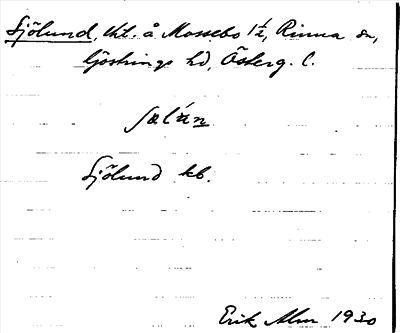 Sjölund, tht. å Mossebo 1/2, Rinna sn,
Göstrings hd, Österg. l.
Sjölund kb.
Erik Alm 1930